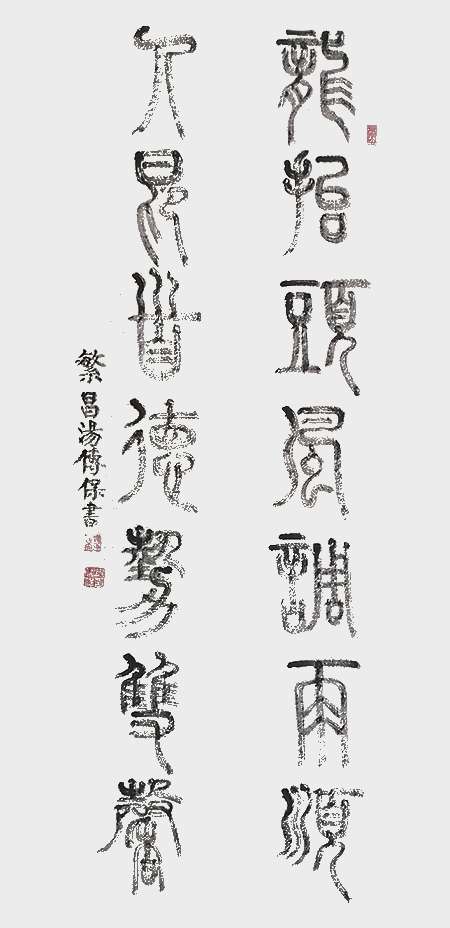 龍抬頭風調雨順
人昂首德勢雙馨
繁昌湯傳保書